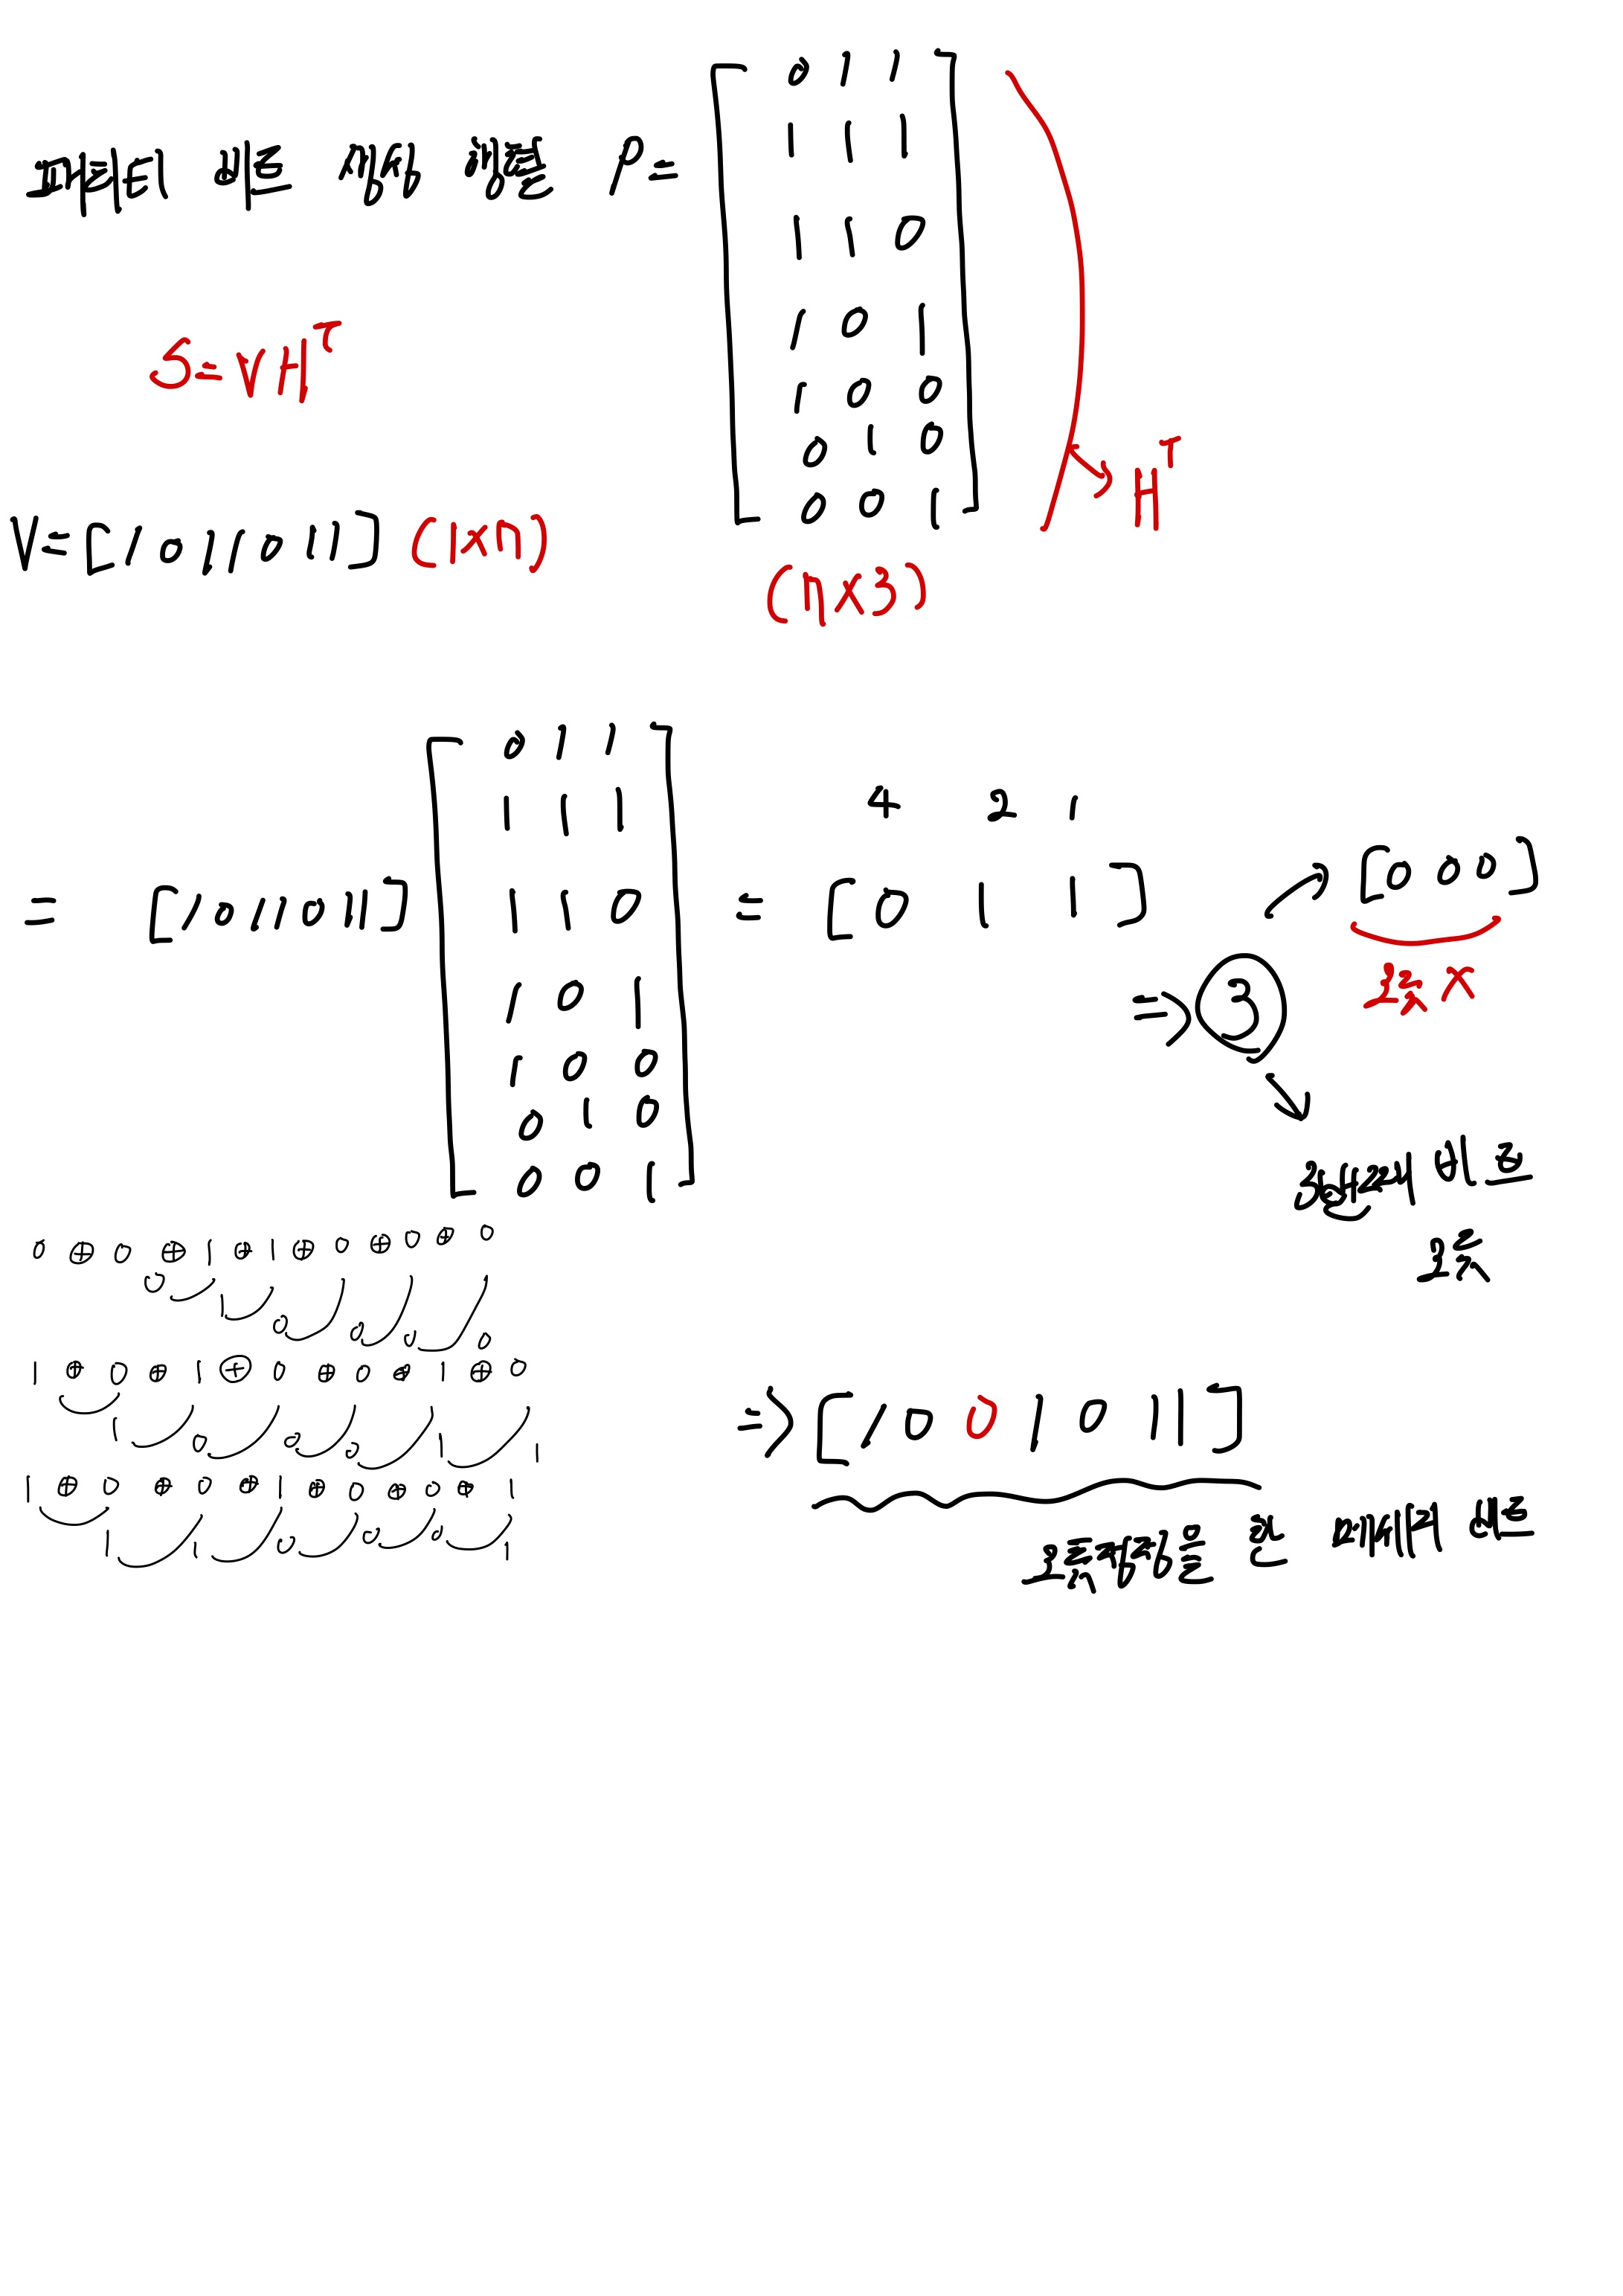 패리티 비트 생성 행렬 P= [ 0 1 1
1 1 1
1 1 0
1 0 1
1 0 0
0 1 0
0 0 1 ]
S=VHᵀ
Hᵀ
V=[1 0 1 1 0 1 1] (1×n)
(n×3)
= [1 0 1 1 0 1 1] [ 0 1 1
1 1 1
1 1 0
1 0 1
1 0 0
0 1 0
0 0 1 ]
4 2 1
= [ 0 1 1 ]
[0 0 0]
오류 X
⇒ 3
3번째 비트
오류
0 ⊕ 0 ⊕ 1 ⊕ 1 ⊕ 0 ⊕ 0 ⊕ 0
0 1 0 0 0 0
1 ⊕ 0 ⊕ 1 ⊕ 0 ⊕ 0 ⊕ 1 ⊕ 0
1 0 0 0 1 1
1 ⊕ 0 ⊕ 0 ⊕ 1 ⊕ 0 ⊕ 0 ⊕ 1
1 1 0 0 0 1
⇒ [1 0 0 1 0 1 1]
오류정정을 한 메세지 비트